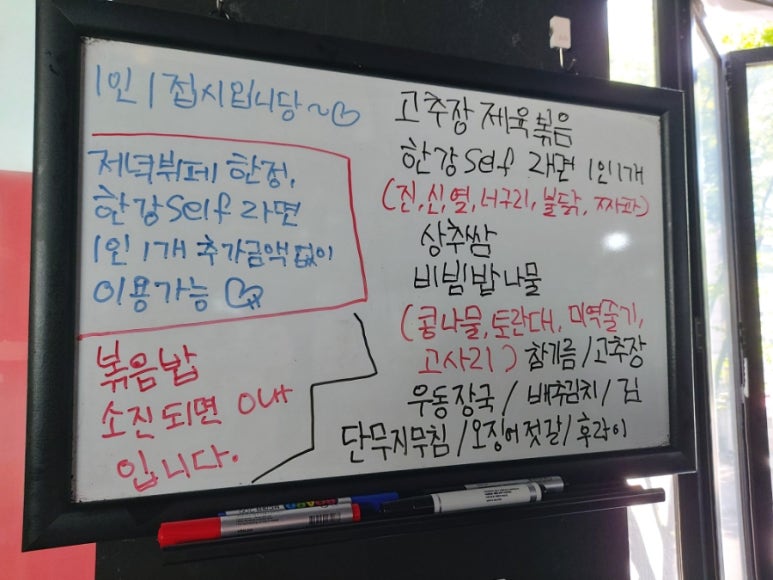 1인 1접시입니당~♡
저녁뷔페 한정,
한강self 라면
1인 1개 추가금액없이
이용가능 ♡
볶음밥
소진되면 out
입니다.
고추장 제육볶음
한강self 라면 1인1개
(진,신,열,너구리,불닭,짜파)
상추쌈
비빔밥나물
(콩나물,토란대,미역줄기,
고사리) 참기름/고추장
우동장국/배추김치/김
단무지무침/오징어젓갈/후라이